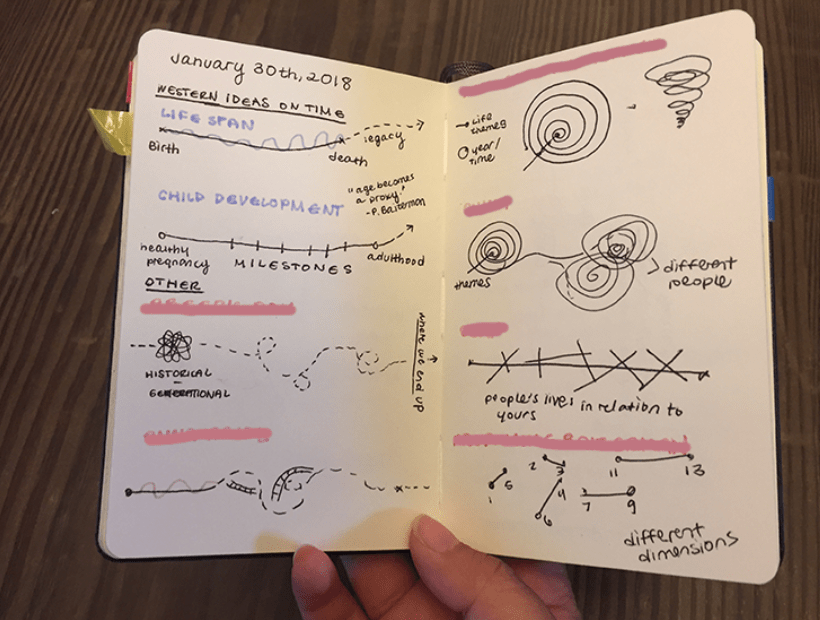 January 30th, 2018
WESTERN IDEAS ON TIME
LIFE SPAN
legacy
Birth
death
CHILD DEVELOPMENT
"age becomes
a proxy."
healthy
pregnancy
MILESTONES
adulthood
OTHER
where we end up
HISTORICAL
GENERATIONAL
→ Life
themes
year/
time
themes
different
people
people's lives in relation to
yours
1
5
2
3
4
6
7
9
11
13
different
dimensions